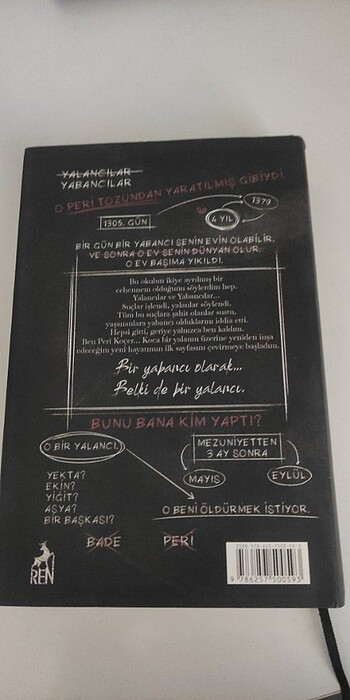 YALANCILAR
YABANCILAR
O PERİ TOZUNDAN YARATILMIŞ GİBİYDİ
1379
1305. GÜN
4 YIL
BİR GÜN BİR YABANCI SENİN EVİN OLABİLİR.
VE SONRA O EV SENİN DÜNYAN OLUR.
O EV BAŞIMA YIKILDI.
Bu okulun ikiye ayrılmış bir
cehennem olduğunu söylerdim hep.
Yalancılar ve Yabancılar...
Suçlar işlendi, yalanlar söylendi.
Tüm bu suçlara şahit olanlar sustu,
yaşananlara yabancı olduklarını iddia etti.
Hepsi gitti, geriye yalnızca ben kaldım.
Ben Peri Koçer... Koca bir yalanın üzerine yeniden inşa
edeceğim yeni hayatımın ilk sayfasını çevirmeye başladım.
Bir yabancı olarak...
Belki de bir yalancı.
BUNU BANA KİM YAPTI?
O BİR YALANCI.
MEZUNİYETTEN
3 AY SONRA
MAYIS
EYLÜL
YEKTA?
EKİN?
YİĞİT?
ASYA?
BİR BAŞKASI?
O BENİ ÖLDÜRMEK İSTİYOR.
BADE
PERİ
REN
9 786257 500593